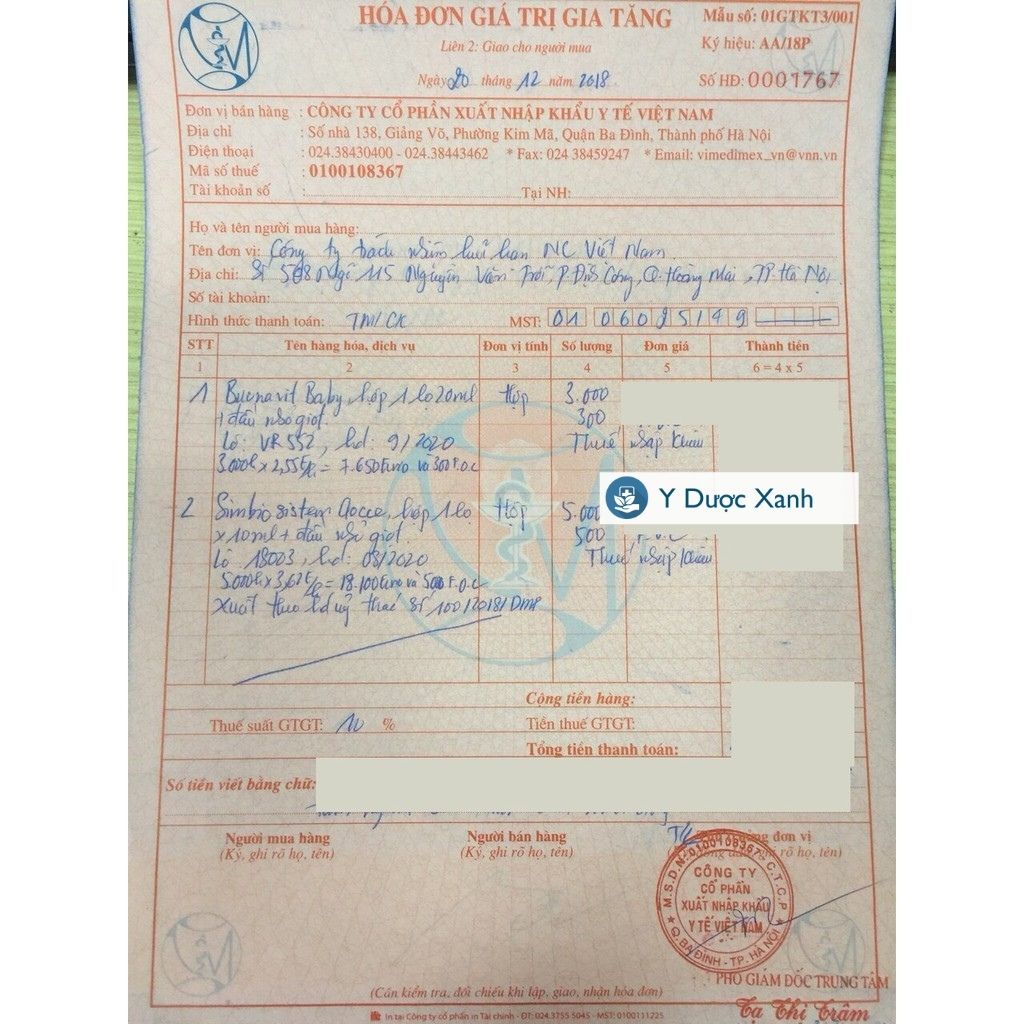 HÓA ĐƠN GIÁ TRỊ GIA TĂNG
Mẫu số: 01GTKT3/001
Liên 2: Giao cho người mua
Ký hiệu: AA/18P
Ngày 20 tháng 12 năm 2018
Số HĐ: 0001767
Đơn vị bán hàng : CÔNG TY CỔ PHẦN XUẤT NHẬP KHẨU Y TẾ VIỆT NAM
Địa chỉ : Số nhà 138, Giảng Võ, Phường Kim Mã, Quận Ba Đình, Thành phố Hà Nội
Điện thoại : 024.38430400 - 024.38443462 * Fax: 024 38459247 * Email: vimedimex_vn@vnn.vn
Mã số thuế : 0100108367
Tài khoản số : Tại NH:
Họ và tên người mua hàng:
Tên đơn vị: Công ty trách nhiệm hữu hạn NC Việt Nam
Địa chỉ: Số 50B Ngõ 115 Nguyễn Văn Trỗi, P. Định Công, Q. Hoàng Mai, TP Hà Nội
Số tài khoản:
Hình thức thanh toán: TM/CK MST: 01 06025149
STT Tên hàng hóa, dịch vụ Đơn vị tính Số lượng Đơn giá Thành tiền
1 2 3 4 5 6 = 4 x 5
1 Buonavit Baby, hộp 1 lọ 20ml Hộp 3.000
+ đầu nhỏ giọt. 300
Lô: VR552, hd: 9/2020 Thuế nhập khẩu
3.000h x 2,55E/h = 7.650 Euro và 300 F.O.C
2 Simbiosistem Gocce, hộp 1 lọ Hộp 5.000
x 10ml + đầu nhỏ giọt. 500 F.O.C
Lô 18003, hd: 08/2020 Thuế nhập khẩu
5.000h x 3,62E/h = 18.100 Euro và 500 F.O.C
Xuất theo hđ uỷ thác số 100/2018/DMP
Y Dược Xanh
Cộng tiền hàng:
Thuế suất GTGT: 10 % Tiền thuế GTGT:
Tổng tiền thanh toán:
Số tiền viết bằng chữ:
Người mua hàng Người bán hàng đơn vị
(Ký, ghi rõ họ, tên) (Ký, ghi rõ họ, tên) rõ họ, tên)
M.S.D.N: 0100108367 - C.T.C.P
CÔNG TY
CỔ PHẦN
XUẤT NHẬP KHẨU
Y TẾ VIỆT NAM
Q. BA ĐÌNH - TP. HÀ NỘI
PHÓ GIÁM ĐỐC TRUNG TÂM
(Cần kiểm tra, đối chiếu khi lập, giao, nhận hóa đơn)
Tạ Thị Trâm
In tại Công ty cổ phần in Tài chính - ĐT: 024.3755 5045 - MST: 0100111225